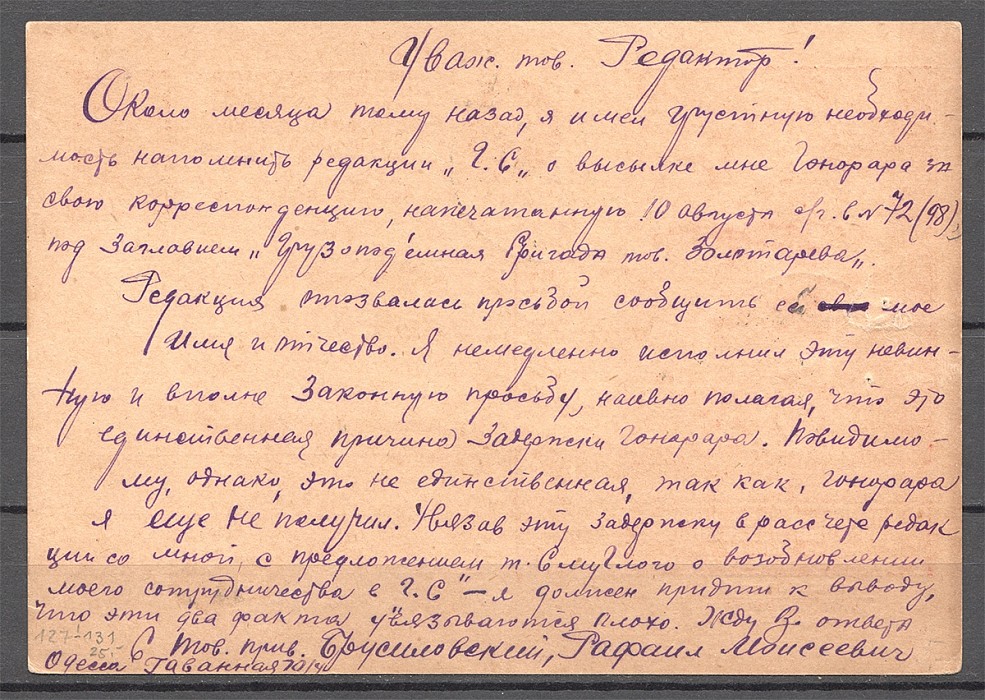 Уваж. тов. Редактор!
Около месяца тому назад, я имел грустную необходи-
мость напомнить редакции „Г.С„ о высылке мне гонорара за
свою корреспонденцию, напечатанную 10 августа с/г. в № 72 (98),
под заглавием „Грузопод'емная бригада тов. Золотарева„.
Редакция отозвалась просьбой сообщить ей мое
имя и отчество. Я немедленно исполнил эту невин-
ную и вполне законную просьбу, наивно полагая, что это
единственная причина задержки гонорара. Повидимо-
му, однако, это не единственная, так как, гонорара
я еще не получил. Увязав эту задержку в рассчете редак
ции со мной, с предложением т. Смуглого о возобновлении
моего сотрудничества в Г.С" — я должен придти к выводу,
что эти два факта увязываются плохо. Жду В. ответа
127-131
25.-
С тов. прив. Брусиловский, Рафаил Моисеевич
Одесса Гаванная